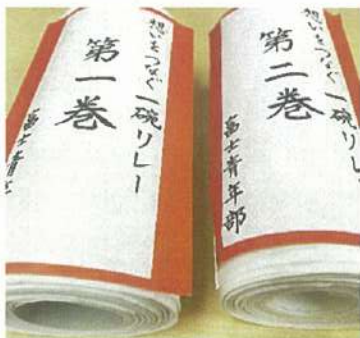 想いをつなぐ一碗リレー
第一巻
富士青
想いをつなぐ一碗リレ
第二巻
富士青年部